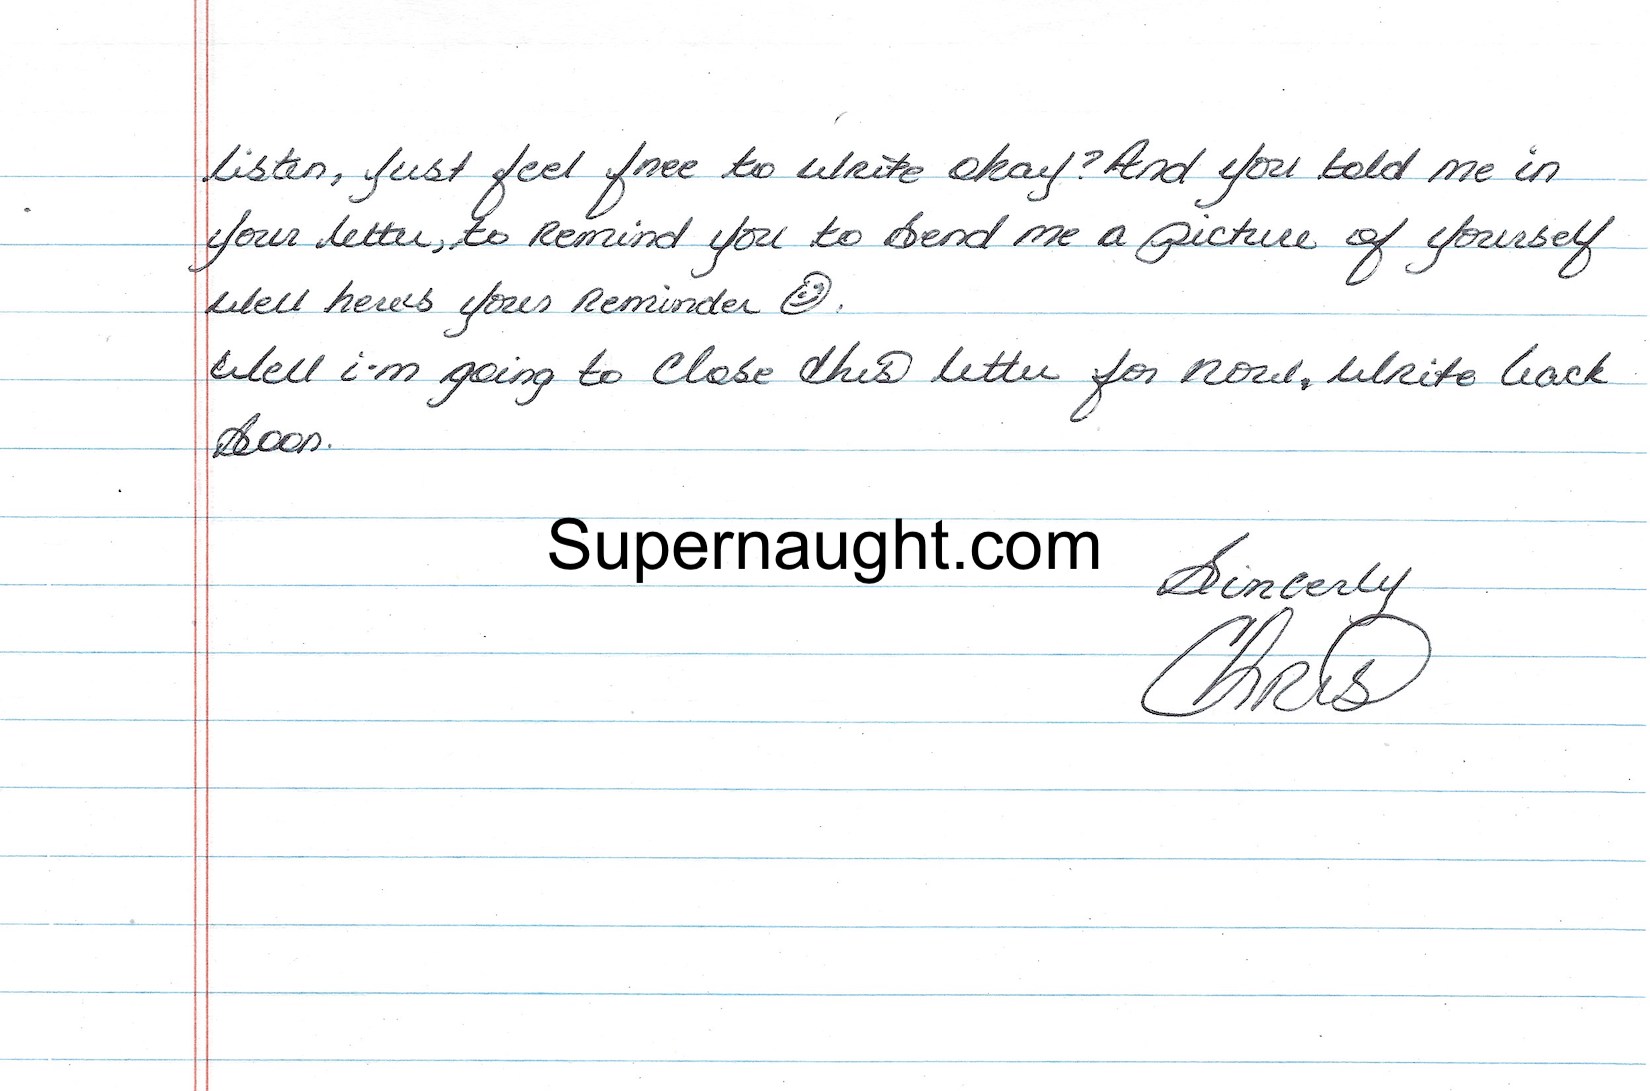 Listen, just feel free to write okay? And you told me in
your letter, to remind you to send me a picture of yourself
well here's your reminder ☺.
Well i'm going to close this letter for now. Write back
soon.
Supernaught.com
Sincerly
Chris